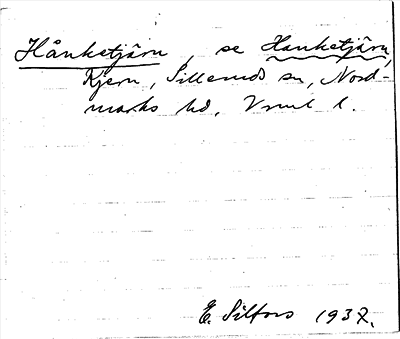 Hånketjärn, se Hanketjärn,
Kjern, Silleruds sn, Nord-
marks hd, Vrml l.
E. Silfors 1937.